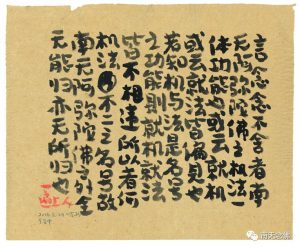 言念念不舍者南
无阿弥陀佛之机法一
体功能也或云就机
或云就法皆偏見也
若知机与法是名号
之功能则就机就法
皆不相违所以者何
机法不二之名号故
南无阿弥陀佛之外全
无能归亦无所归也